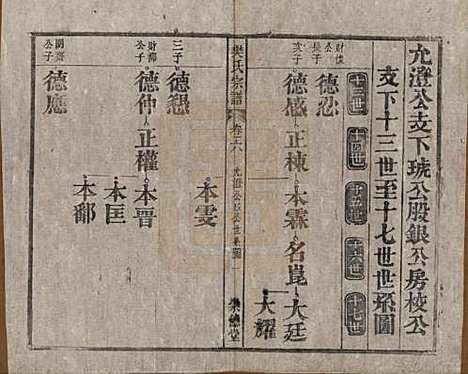 允澄公支下琥公股銀公房校公
支下十三世至十七世世系圖
十三世 十四世 十五世 十六世 十七世
財惶長子 德忍
公次子 德感 正棟 本霖 名崑 大廷
大耀
樊氏宗譜 卷六 允澄公位公世系圖 一 樂德堂
本雯
三子 德懇
財卿公子 德仲 正權 本晋
本匡
閏齋公子 德應 本鄱